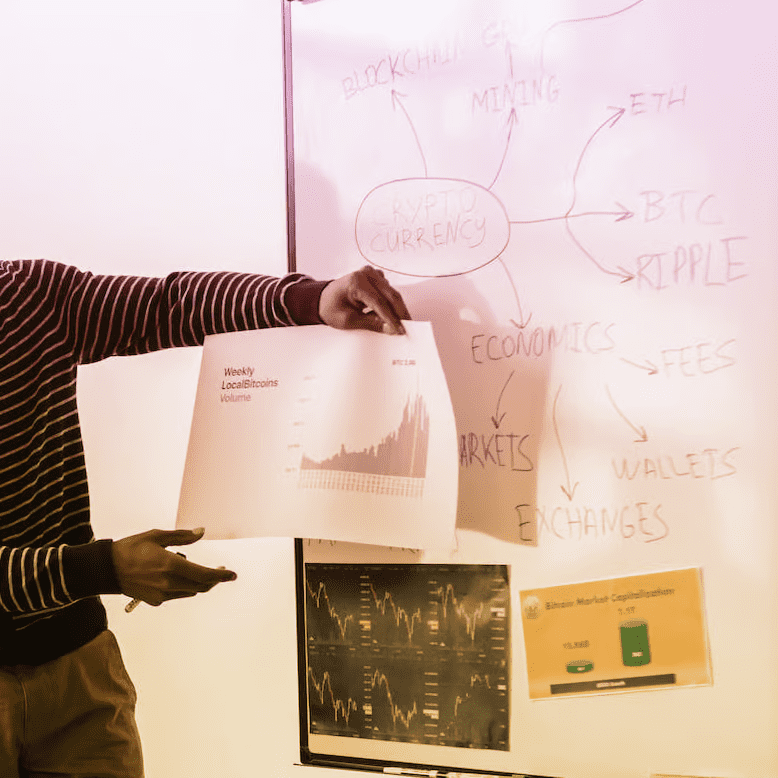 BLOCKCHAIN
MINING
ETH
CRYPTO
CURRENCY
BTC
RIPPLE
ECONOMICS
FEES
ARKETS
WALLETS
EXCHANGES
Weekly
LocalBitcoins
Volume
Bitcoin Market Capitalization